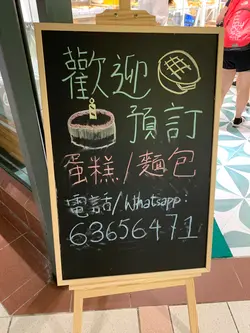 歡迎
預訂
蛋糕/麵包
電話/Whatsapp:
63656471